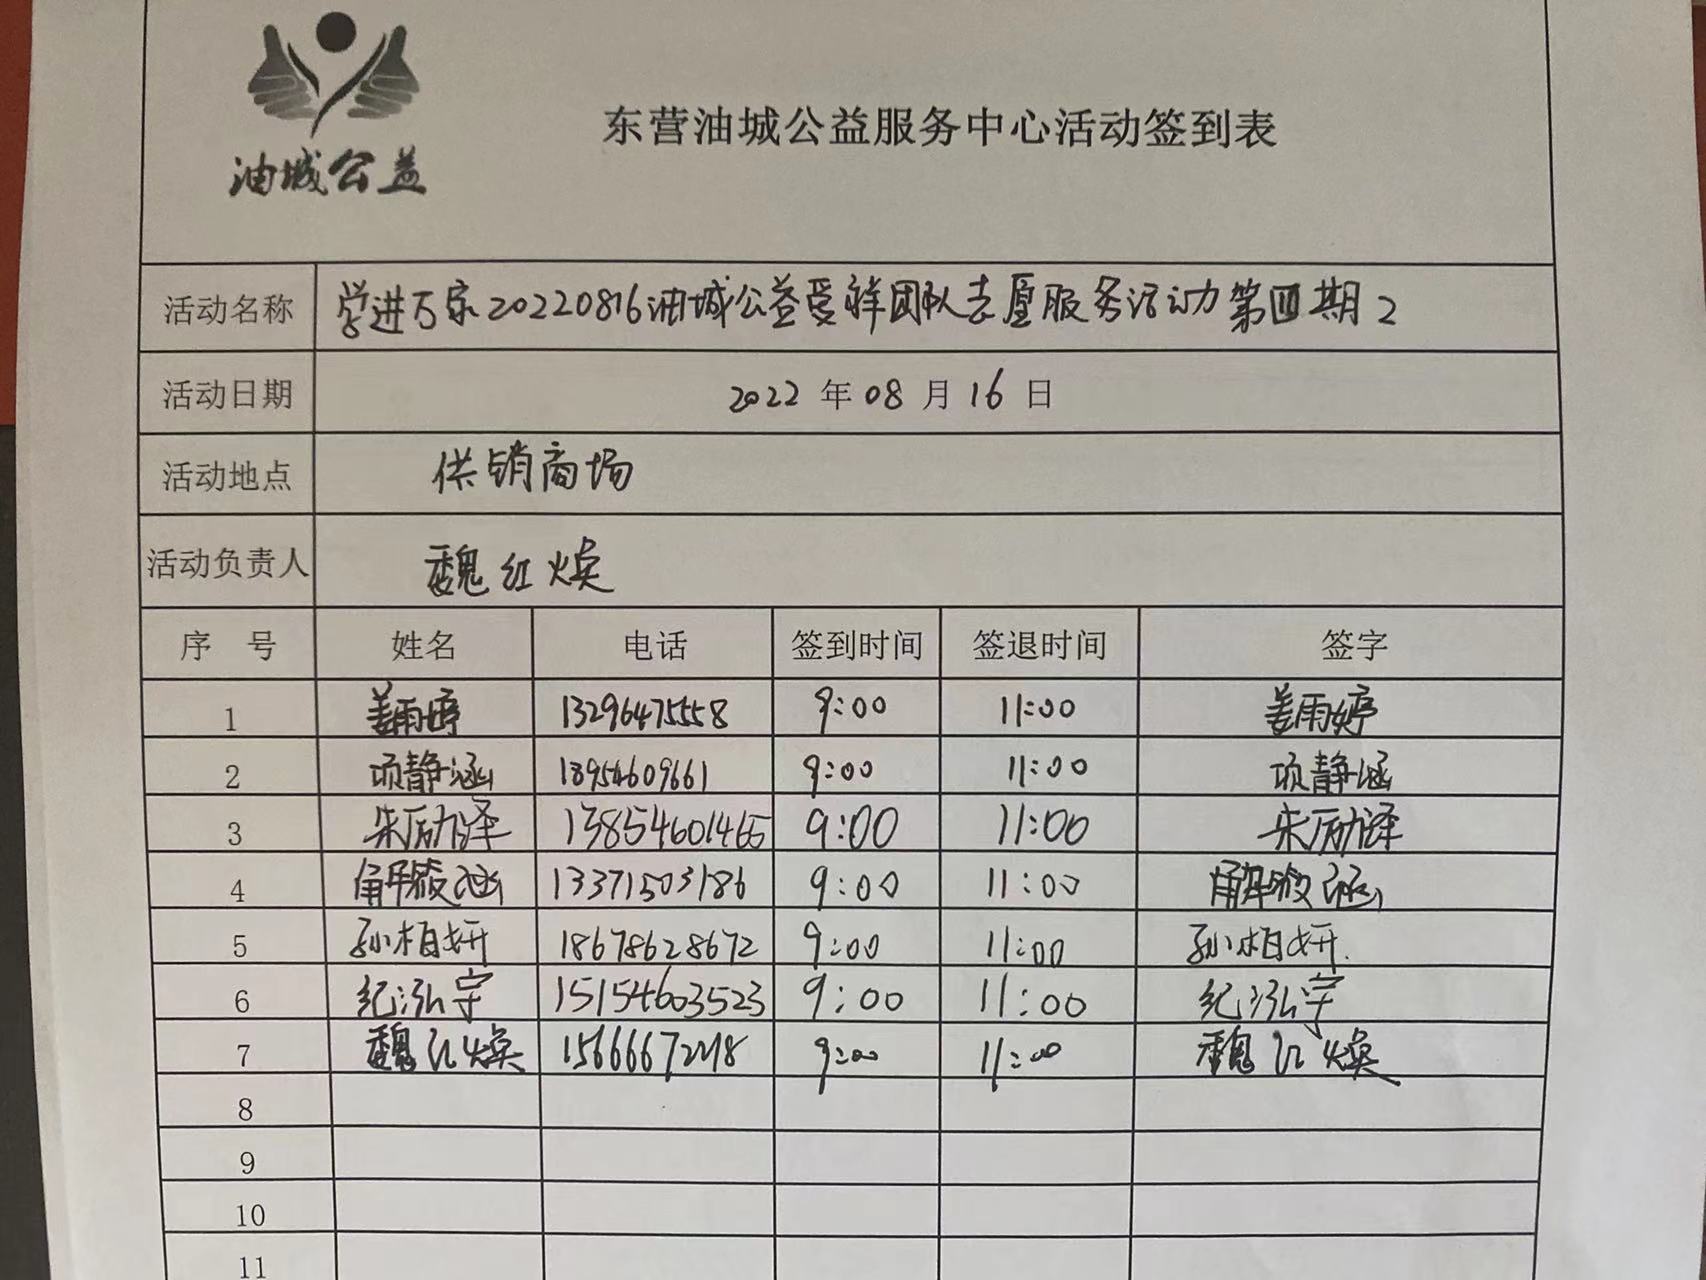 油城公益
东营油城公益服务中心活动签到表
活动名称 学进万家20220816油城公益爱祥团队志愿服务活动第四期2
活动日期 2022年08月16日
活动地点 供销商场
活动负责人 魏红焕
序号 姓名 电话 签到时间 签退时间 签字
1 姜雨婷 13296475558 9:00 11:00 姜雨婷
2 项静涵 18954609661 9:00 11:00 项静涵
3 朱励泽 13854601465 9:00 11:00 朱励泽
4 13371503186 9:00 11:00
5 孙柏妍 18678628672 9:00 11:00 孙柏妍.
6 纪泓宇 15154603523 9:00 11:00 纪泓宇
7 魏红焕 9:00 11:00 魏红焕
8
9
10
11